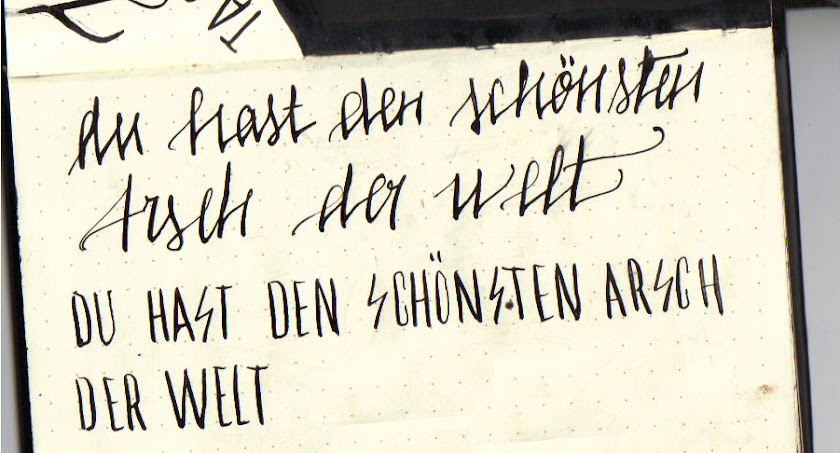 TA
du hast den schönsten
Arsch der welt
DU HAST DEN SCHÖNSTEN ARSCH
DER WELT